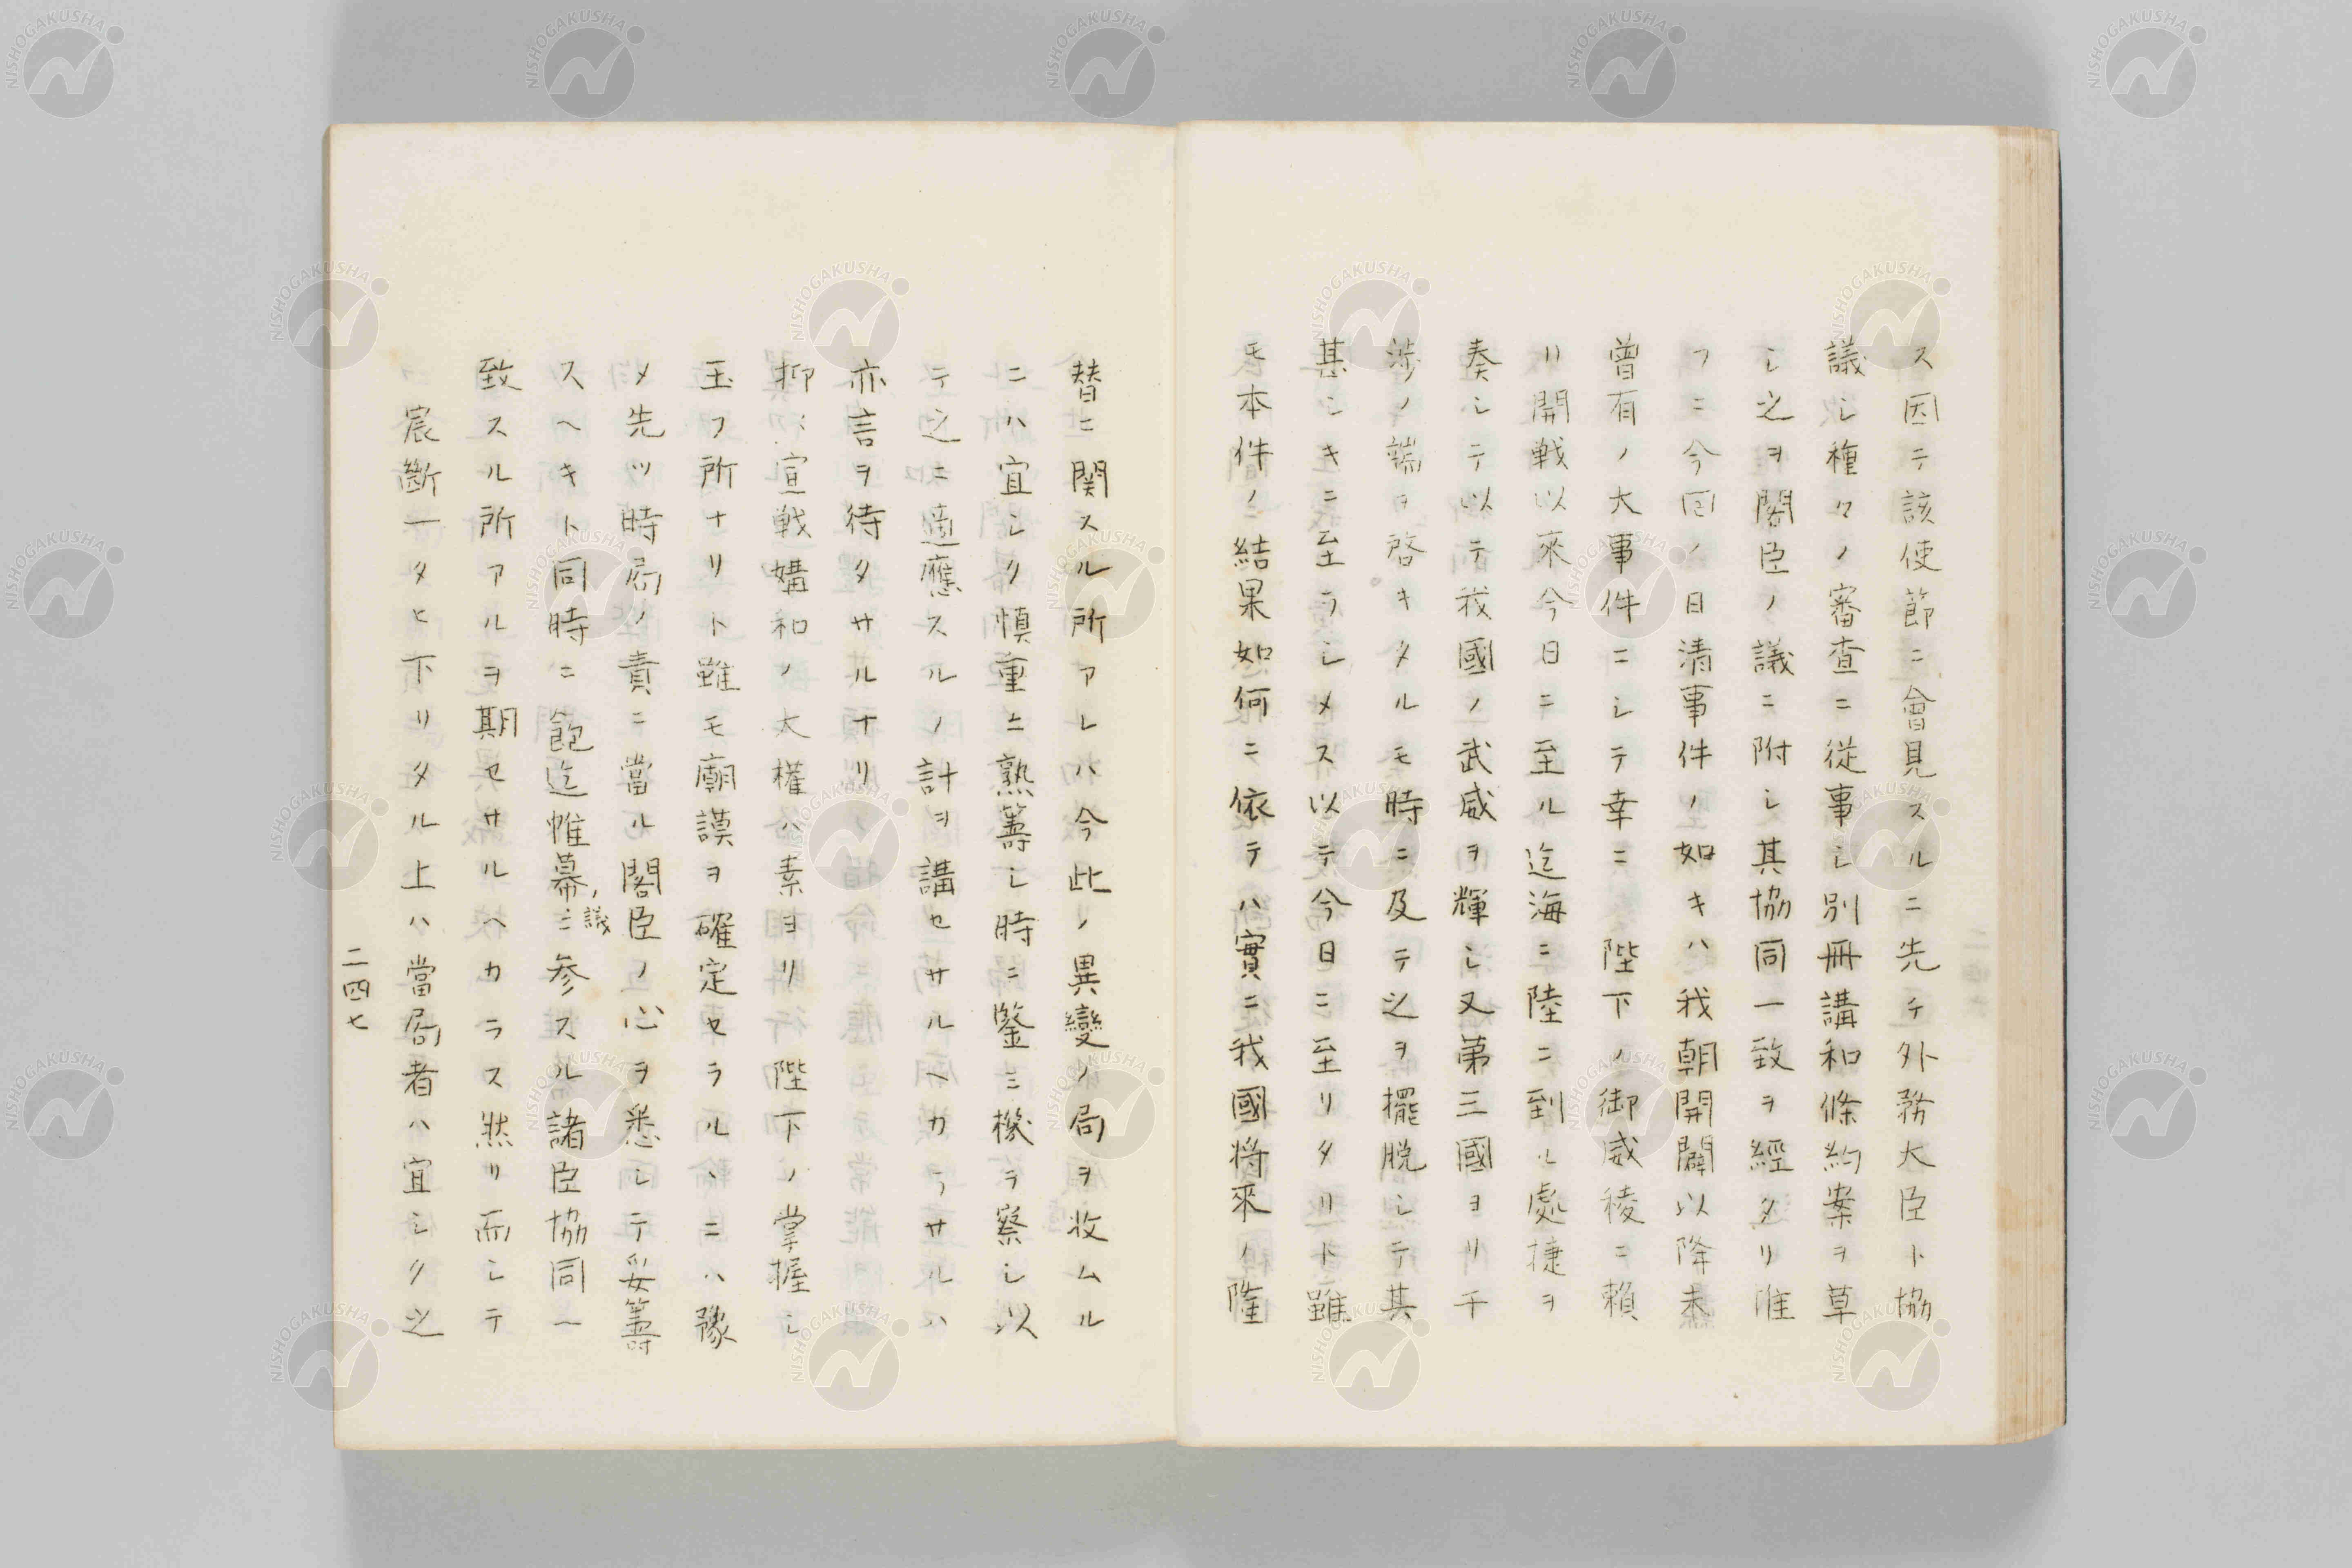 ス因テ該使節ニ會見スルニ先チ外務大臣ト協
議シ種々ノ審査ニ從事シ別冊講和條約案ヲ草
シ之ヲ閣臣ノ議ニ附シ其協同一致ヲ經タリ惟
フニ今回ノ日清事件ノ如キハ我朝開闢以降未
曾有ノ大事件ニシテ幸ニ 陛下ノ御威稜ニ賴
リ開戰以來今日ニ至ル迄海ニ陸ニ到ル處捷ヲ
奏シテ以テ我國ノ武威ヲ輝シ又第三國ヨリ干
渉ノ端ヲ啓キタルモ時ニ及テ之ヲ擺脱シテ其
甚シキニ至ラシメス以テ今日ニ至リタリト雖
モ本件ノ結果如何ニ依テハ實ニ我國將來ノ隆
替ニ関スル所アレハ今此ノ異變ノ局ヲ收ムル
ニハ宜シク愼重ニ熟籌シ時ニ鑒ミ機ヲ察シ以
テ之ニ適應スルノ計ヲ講セサルヘカラサルハ
亦言ヲ待タサルナリ
抑〻宣戰媾和ノ大權ハ素ヨリ 陛下ノ掌握シ
玉フ所ナリト雖モ廟謨ヲ確定セラルヽニハ豫
メ先ツ時局ノ責ニ當ル閣臣ノ心ヲ悉シテ妥籌
スヘキト同時ニ飽迄帷幕ノ議ニ参スル諸臣協同一
致スル所アルヲ期セサルヘカラス然リ而シテ
宸斷一タヒ下リタル上ハ當局者ハ宜シク之
二四七
NISHOGAKUSHA